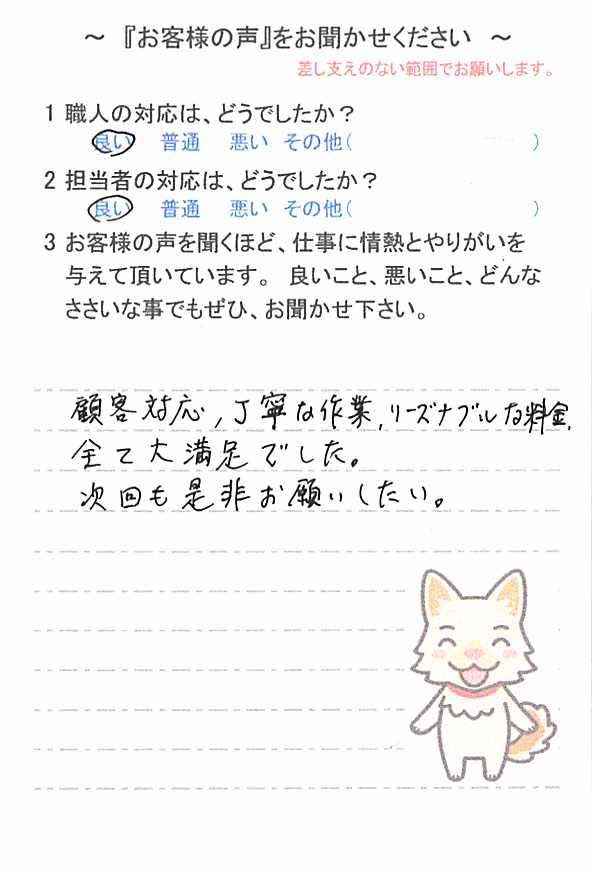 ～ 『お客様の声』をお聞かせください ～
差し支えのない範囲でお願いします。
1 職人の対応は、どうでしたか？
良い 普通 悪い その他( )
2 担当者の対応は、どうでしたか？
良い 普通 悪い その他( )
3 お客様の声を聞くほど、仕事に情熱とやりがいを
与えて頂いています。 良いこと、悪いこと、どんな
ささいな事でもぜひ、お聞かせ下さい。
顧客対応，丁寧な作業，リーズナブルな料金，
全て大満足でした。
次回も是非お願いしたい。